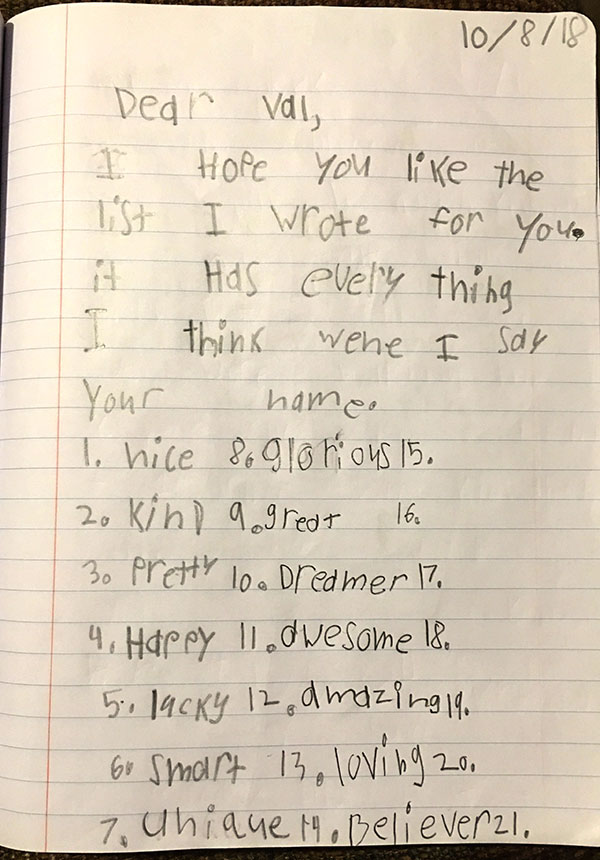 10/8/18
Dear Val,
I Hope you like the
list I wrote for you.
it Has every thing
I think wene I say
Your name.
1. nice 8. glorious 15.
2. KinD 9. great 16.
3. Pretty 10. Dreamer 17.
4. Happy 11. awesome 18.
5. lacky 12. amazing 19.
6. smart 13. loving 20.
7. unique 14. Believer 21.